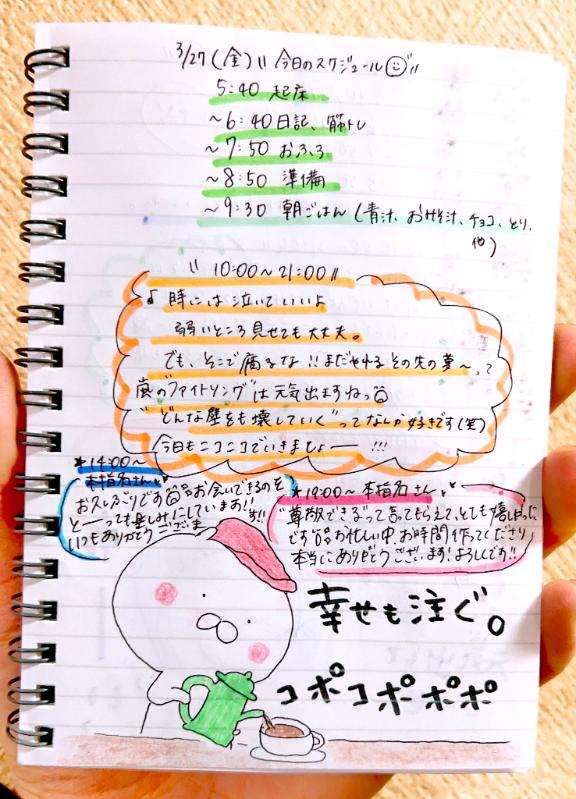 3/27(金) 〃今日のスケジュール〃
5:40 起床
~6:40 日記、筋トレ
~7:50 おふろ
~8:50 準備
~9:30 朝ごはん(青汁、おみそ汁、チョコ、とり、
他)
〃10:00~21:00〃
♪ 時には泣いていいよ
弱いところ見せても大丈夫。
でも、そこで腐るな!!まだやれる その先の夢~って
嵐の"ファイトソング"は元気出ますねっ
"どんな壁をも壊していく"ってなんか好きです(笑)
今日もニコニコでいきましょー!!!
*14:00~
本指名さん
お久しぶりです お会いできるのを
とーっても楽しみにしています!!
いつもありがとうございま
す!!
*19:00~本指名さん
"尊敬できる"って言ってもらえて、とても嬉しかった
です お忙しい中、お時間作ってくださり
本当にありがとうございます!よろしくです!!
幸せも注ぐ。
コポコポポポ